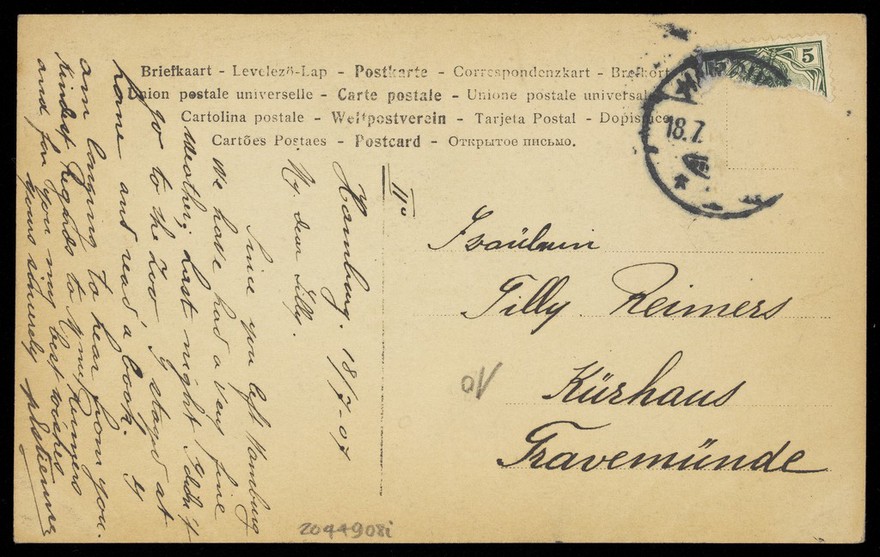 Briefkaart - Levelező-Lap - Postkarte - Correspondenzkart - Brefkort
Union postale universelle - Carte postale - Unione postale universale
Cartolina postale - Weltpostverein - Tarjeta Postal - Dopisnice
Cartões Postaes - Postcard - Открытое письмо.
5
5
18.7
II°
Hamburg. 18/7-07
My dear Tilly.
Since you left Hamburg
we have had a very fine
weather; last night I didn't
go to the Zoo, I stayed at
home and read a book. I
am longing to hear from you.
Kindest Regards to Mme Reimers
and for you my best wishes
yours sincerely
Fräulein
Tilly Reimers
Kürhaus
Travemünde
2044908i